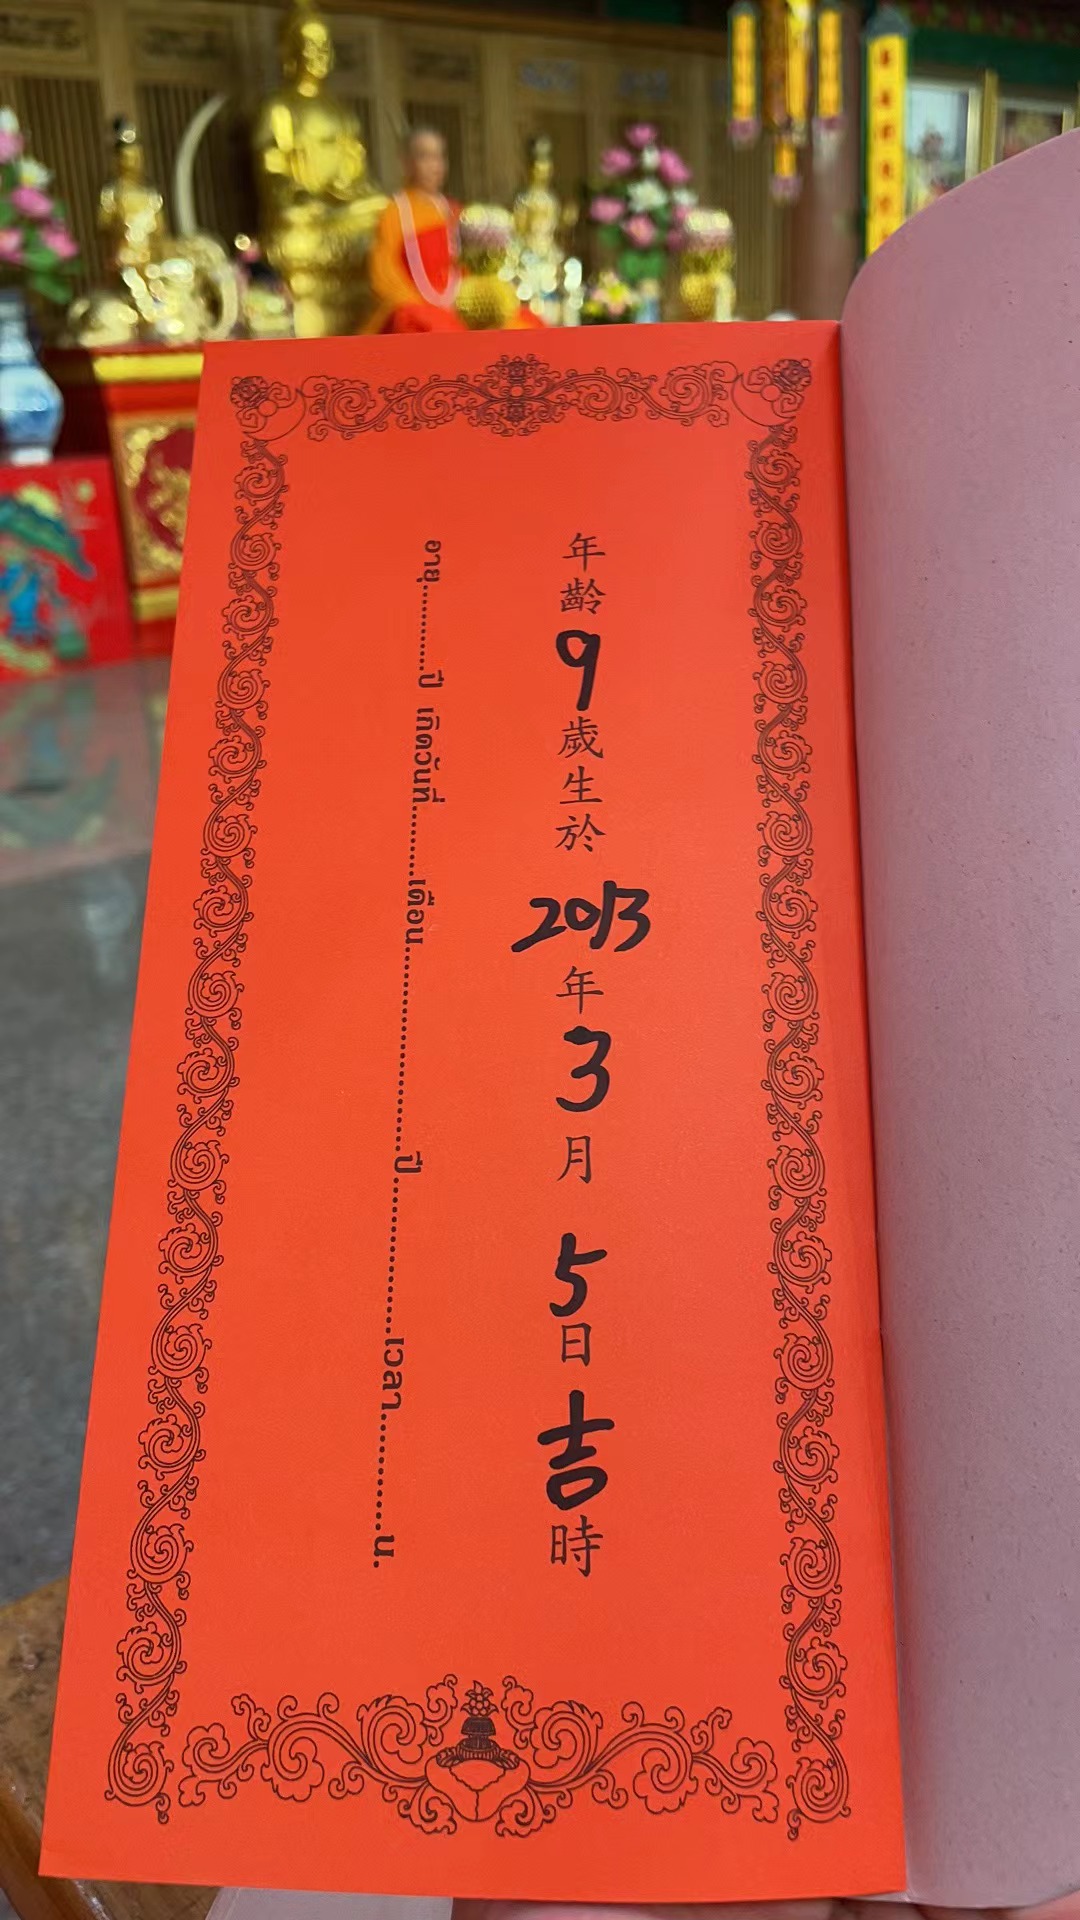 年齡9歲生於2013年3月5日吉時
อายุ............ปี เกิดวันที่..........เดือน..............................ปี......................เวลา................น.